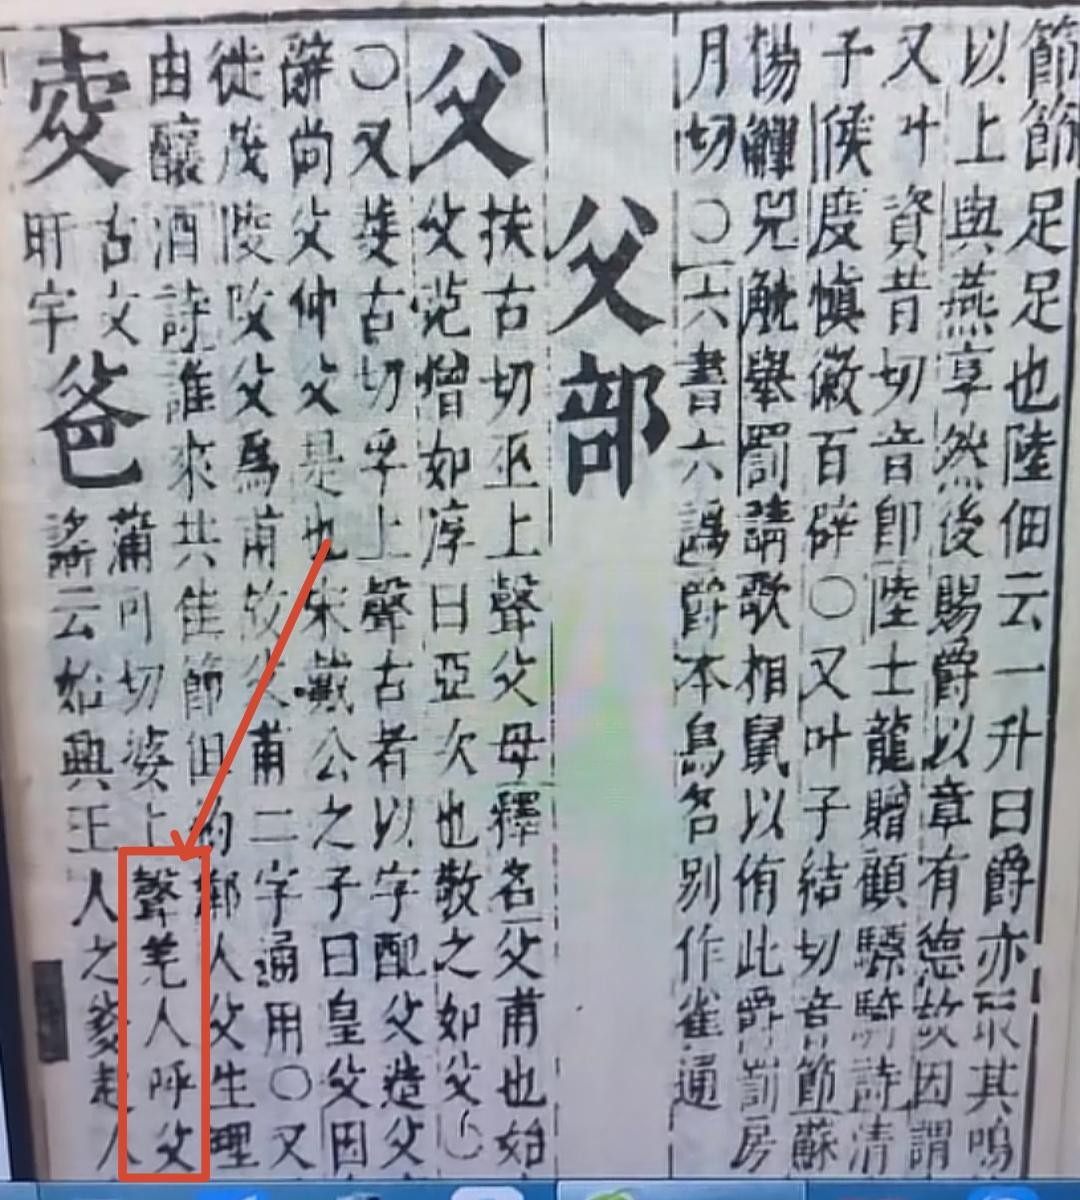 節節足足也陸佃云一升曰爵亦取其鳴
以上與燕享然後賜爵以章有德故因謂
又叶資昔切音卽陸士龍贈顧驃騎詩清
子侯度慎徽百辟○又叶子結切音節蘇
惕觶兕觥舉罰請歌相鼠以侑此爵罰房
月切○六書六譌爵本鳥名别作雀通
父部
父
扶古切巫上聲父母釋名父甫也始
父范憎如淳曰亞次也敬之如父
○又斐古切孚上聲古者以字配父造父
辭尚父仲父是也宋戴公之子曰皇父因
從茂陵 父爲甫 父甫二字通用○又
由釀酒詩誰來共佳節但 鄉人父生理
㕛
古文
肝宇
爸
蒲可切婆上聲羌人呼父
謠云始興王人之爹赴人